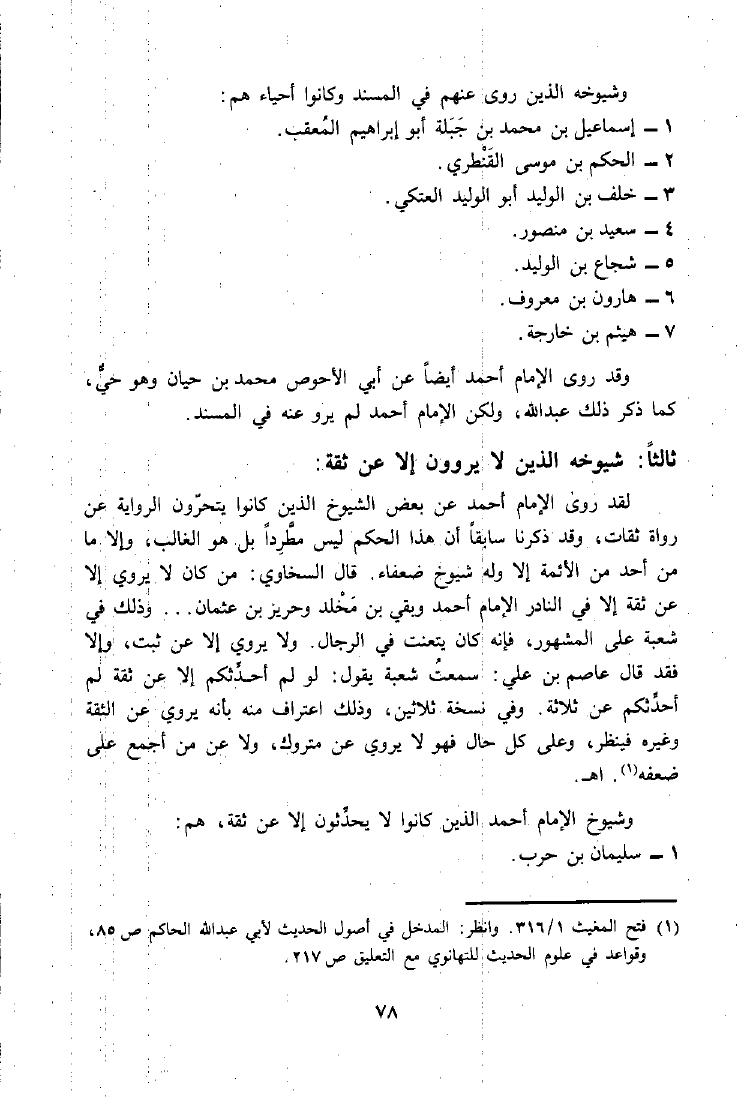 وشيوخه الذين روى عنهم في المسند وكانوا أحياء هم:
١ ــ إسماعيل بن محمد بن جَبَلة أبو إبراهيم المُعقب.
٢ ــ الحكم بن موسى القَنْطري.
٣ ــ خلف بن الوليد أبو الوليد العتكي.
٤ ــ سعيد بن منصور.
٥ ــ شجاع بن الوليد.
٦ ــ هارون بن معروف.
٧ ــ هيثم بن خارجة.
وقد روى الإمام أحمد أيضاً عن أبي الأحوص محمد بن حيان وهو حيٌّ،
كما ذكر ذلك عبدالله، ولكن الإمام أحمد لم يرو عنه في المسند.
ثالثاً: شيوخه الذين لا يروون إلا عن ثقة:
لقد روى الإمام أحمد عن بعض الشيوخ الذين كانوا يتحرّون الرواية عن
رواة ثقات، وقد ذكرنا سابقاً أن هذا الحكم ليس مطَّرداً بل هو الغالب، وإلا ما
من أحد من الأئمة إلا وله شيوخ ضعفاء. قال السخاوي: من كان لا يروي إلا
عن ثقة إلا في النادر الإمام أحمد وبقي بن مَخْلد وحريز بن عثمان... وذلك في
شعبة على المشهور، فإنه كان يتعنت في الرجال. ولا يروي إلا عن ثبت، وإلا
فقد قال عاصم بن علي: سمعتُ شعبة يقول: لو لم أحدِّثكم إلا عن ثقة لم
أحدِّثكم عن ثلاثة. وفي نسخة ثلاثين، وذلك اعتراف منه بأنه يروي عن الثقة
وغيره فينظر، وعلى كل حال فهو لا يروي عن متروك، ولا عن من أجمع على
ضعفه(١). اهـ.
وشيوخ الإمام أحمد الذين كانوا لا يحدِّثون إلا عن ثقة، هم:
١ ــ سليمان بن حرب.
(١) فتح المغيث ٣١٦/١. وانظر: المدخل في أصول الحديث لأبي عبدالله الحاكم ص ٨٥،
وقواعد في علوم الحديث للتهانوي مع التعليق ص ٢١٧.
٧٨